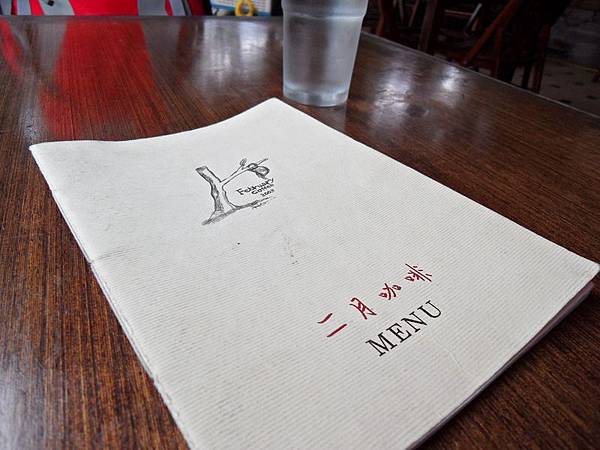 February
Coffee
2002
二月咖啡
MENU